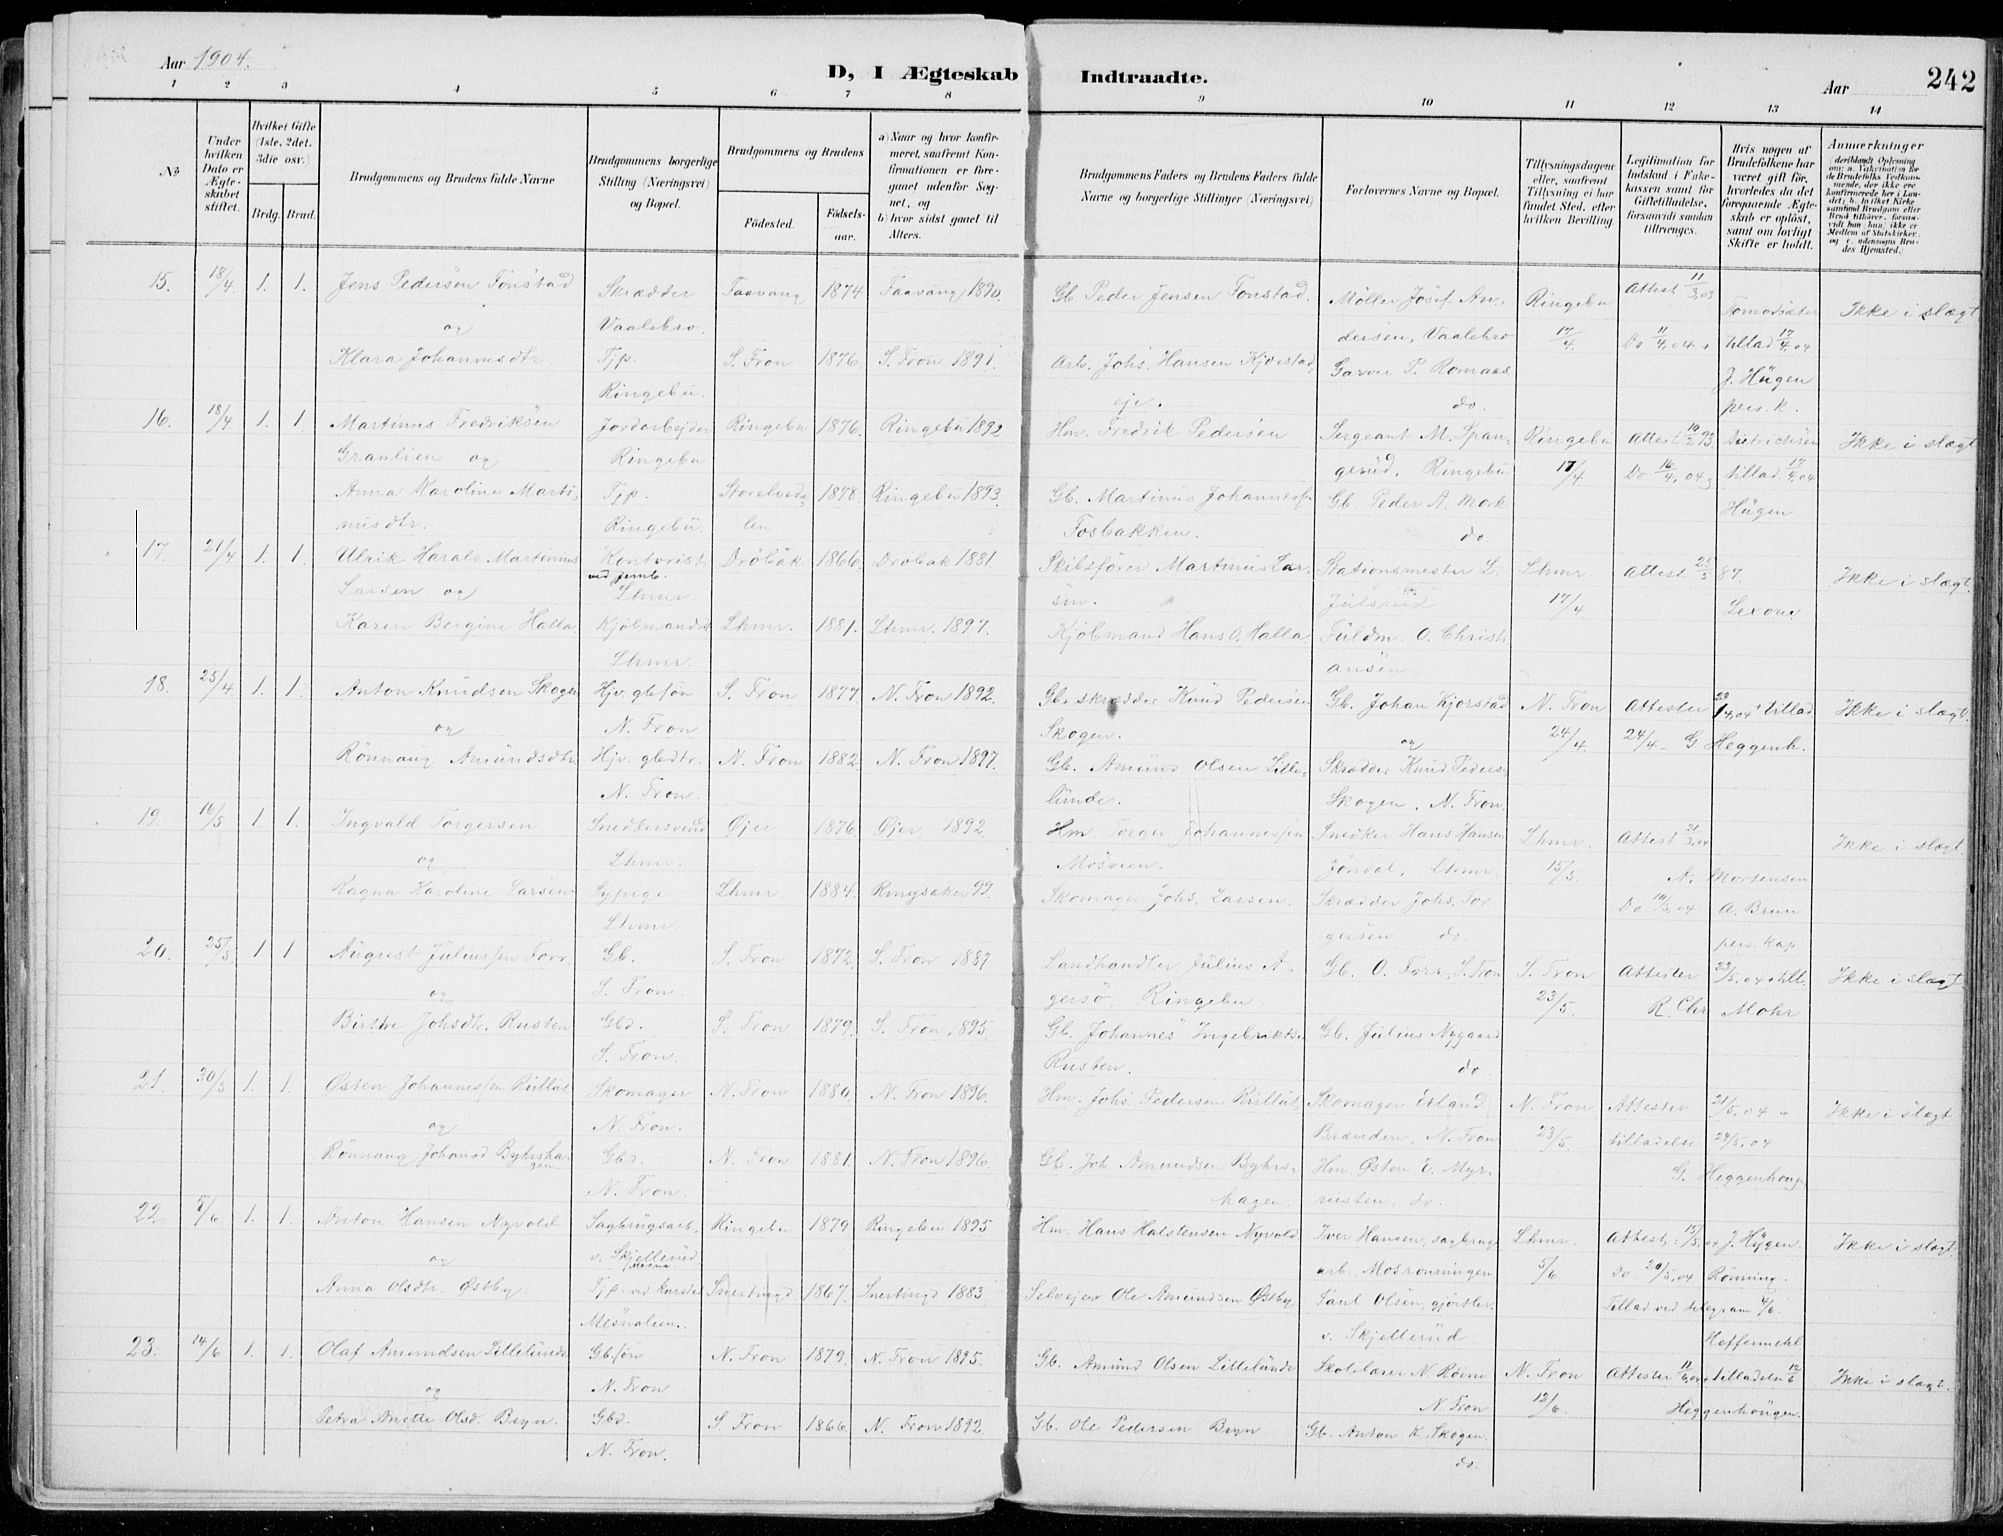 Aar 1904.
D, I Ægteskab Indtraadte.
Aar
242
1 2 3 4 5 6 7 8 9 10 11 12 13 14
No
Under hvilken Dato er Ægteskabet stiftet.
Hvilket Gifte (1ste, 2det, 3die osv.)
Brdg. Brud.
Brudgommens og Brudens fulde Navne
Brudgommens borgerlige Stilling (Næringsvei) og Bopæl.
Brudgommens og Brudens
Fødested.
Fødselsaar.
a) Naar og hvor konfirmeret, saafremt Konfirmationen er foregaaet udenfor Sognet, og
b) hvor sidst gaaet til Alters.
Brudgommens Faders og Brudens Faders fulde Navne og borgerlige Stillinger (Næringsvei)
Forlovernes Navne og Bopæl.
Tillysningsdagene eller, saafremt Tillysning ei har fundet Sted, efter hvilken Bevilling.
Legitimation for Indskud i Enkekassen samt for Giftetilladelse, forsaavidt saadan tiltrænges.
Hvis nogen af Brudefolkene har været gift før, hvorledes da det foregaaende Ægteskab er opløst, samt om lovligt Skifte er holdt.
Anmærkninger
15. 18/4 1. 1. Jens Pedersen Fonstad Skrædder Faavang 1874 Faavang 1890. Gb. Peder Jensen Fonstad. Møller Josef An- Ringebu Attest 11/3,03 Ikke i slægt
og Vaalebro. dersen, Vaalebro 17/4. Do 11/4,04 + tillad 17/4,04
Klara Johannesdtr. Tjp. S. Fron 1876. S. Fron 1891. Arb. Johs. Hansen Kjorstad- Garver P. Romaas
Ringebu. eje. do. J. Hügen pers. k.
16. 18/4 1. 1 Martinus Fredriksen Jordarbejder Ringebu 1876. Ringebu 1892 Hm. Fredrik Pedersen Sergeant M. Span- Ringebu Attest 10/2 93 Ikke i slægt
Granlien og Ringebu gerud, Ringebu 17/4 Do 16/4,04 tillad. 17/4,04
Anna Karoline Marti- Tjp. Storelveda- 1878. Ringebu 1893. Gb. Martinus Johannes Gb. Peder A. Mork Hügen
nusdtr. Ringebu. len Fosbakken. do.
17. 21/4 1. 1. Ulrik Harald Martinius Kontorist Drøbak 1866. Drøbak 1881. Skibsfører Martinius Lar- Stationsmester L. Lhmr. Attest 25/5 87. Ikke i slægt.
Larsen og ved jernb. Lhmr sen. Julsrud 17/4
Karen Bergine Halla Kjøbmandsd. Lhmr. 1881. Lhmr. 1897. Kjøbmand Hans O. Halla Fuldm. O. Christi
Lhmr. ansen.
18. 25/4 1. 1. Anton Knudsen Skogen Hjv. gbsøn S. Fron 1877. N. Fron 1892. Gb. skrædder Knud Pedersen Gb. Johan Kjorstad N. Fron Attester 20/4,04 + tillad. Ikke i slægt.
og N. Fron Skogen. og 24/4. 24/4 - G Heggenh.
Rönnaug Amundsdtr. Hjv. gbdtr. N. Fron 1882. N. Fron 1897. Gb. Amund Olsen Lille- Skrædder Knud Peders.
N. Fron. lunde. Skogen, N. Fron.
19. 16/5 1. 1. Ingvald Torgersen Snedkersvend Øjer 1876. Øjer 1892. Hm. Torger Johannessen Snedker Hans Hansen Lhmr. Attest 21/3,04 Ikke i slægt.
og Lhmr. Mosveen. Jöndal, Lhmr. 15/5. A. Mortensen
Ragna Karoline Larsen Sypige Lhmr. 1884. Ringsaker 99. Skomager Johs. Larsen. Skrædder Johs. Tor Do 10/5,04 A. Bruun
Lhmr. gersen do. pers. kap
20. 25/5 1 1 August Juliussen Forr Gb. S. Fron 1872. S. Fron 1887 Landhandler Julius A- Gb. O. Forr, S. Fron S. Fron Attester 23/5.04 + till. Ikke i slægt
og S. Fron. gersö, Ringebu. 23/5. R. Chr. Mohr
Birthe Johsdtr. Rusten Gbd. S. Fron 1879. S. Fron 1895. Gb. Johannes Ingebrikts. Gb. Julius Nygaard
S. Fron. Rusten. do.
21. 30/5 1. 1. Østen Johannessen Rulløst Skomager N. Fron 1880. N. Fron 1896. Hm. Johs. Pedersen Rulløst, Skomager Erland N. Fron Attester 21/5,04 + Ikke i slægt
og N. Fron. Brænden, N. Fron 23/5. tilladelse 24/5,04
Rönnaug Johansd. Byhrshagen Gbd. N. Fron 1881. N. Fron 1896. Gb. Joh. Amundsen Byhrs- Hm. Østen E. Myr- G. Heggenhoug
N. Fron. hagen. rusten, do.
22. 5/6 1. 1. Anton Hansen Nyvold Sagbrugsarb. Ringebu 1879 Ringebu 1895 Hm. Hans Halstensen Nyvold Iver Hansen, sagbrugs Lhmr. Attest. 15/5,04 J. Hÿgen. Ikke i slægt.
og v. Skjellerud arb. Mosrönningen 5/6 Do 20/5,04 Rønning.
Anna Olsdtr. Østby Tjp. ved Snertingd. 1867. Snertingd 1883 Selvejer Ole Amundsen Østby Paul Olsen, gjörtler. Tillad ved telegram 4/6.
Mesnalien. v. Skjellerud Heffermehl
23. 14/6 1. 1. Olaf Amundsen Lillelunde Gbsøn N. Fron 1879. N. Fron 1895. Gb. Amund Olsen Lillelunde Skolelærer N. Rønne N. Fron Attester 11/6,04, tilladelse 12/6 Ikke i slægt.
og N. Fron N. Fron 12/6. Heggenhougen.
Petra Anette Olsd. Bryn. Gbd. S. Fron 1866. N. Fron 1892. Gb. Ole Pedersen Bryn Gb. Anton K. Skogen.
N. Fron. do.